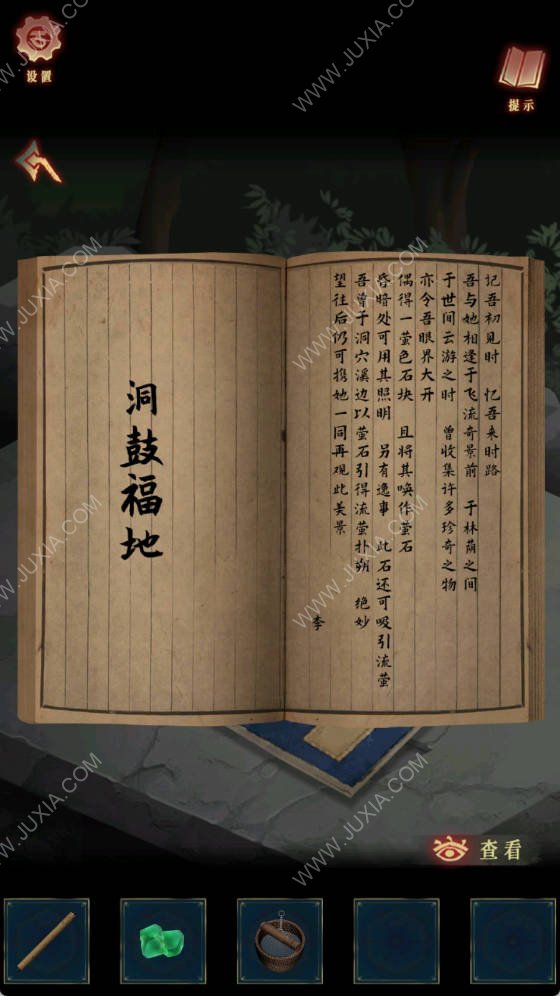 设置
提示
记吾初见时 忆吾来时路
吾与她相逢于飞流奇景前 于林荫之间
于世间云游之时 曾收集许多珍奇之物
亦令吾眼界大开
偶得一萤色石块 且将其唤作萤石
昏暗处可用其照明 另有逸事 此石还可吸引流萤
吾曾于洞穴溪边以萤石引得流萤扑朔 绝妙
望往后仍可携她一同再观此美景
李
洞鼓福地
查看
WWW.JUXIA.COM
WWW.JUXIA.COM
WWW.JUXIA.COM
WWW.JUXIA.COM
WWW.JUXIA.COM
WWW.JUXIA.COM
WWW.JUXIA.COM
WWW.JUXIA.COM